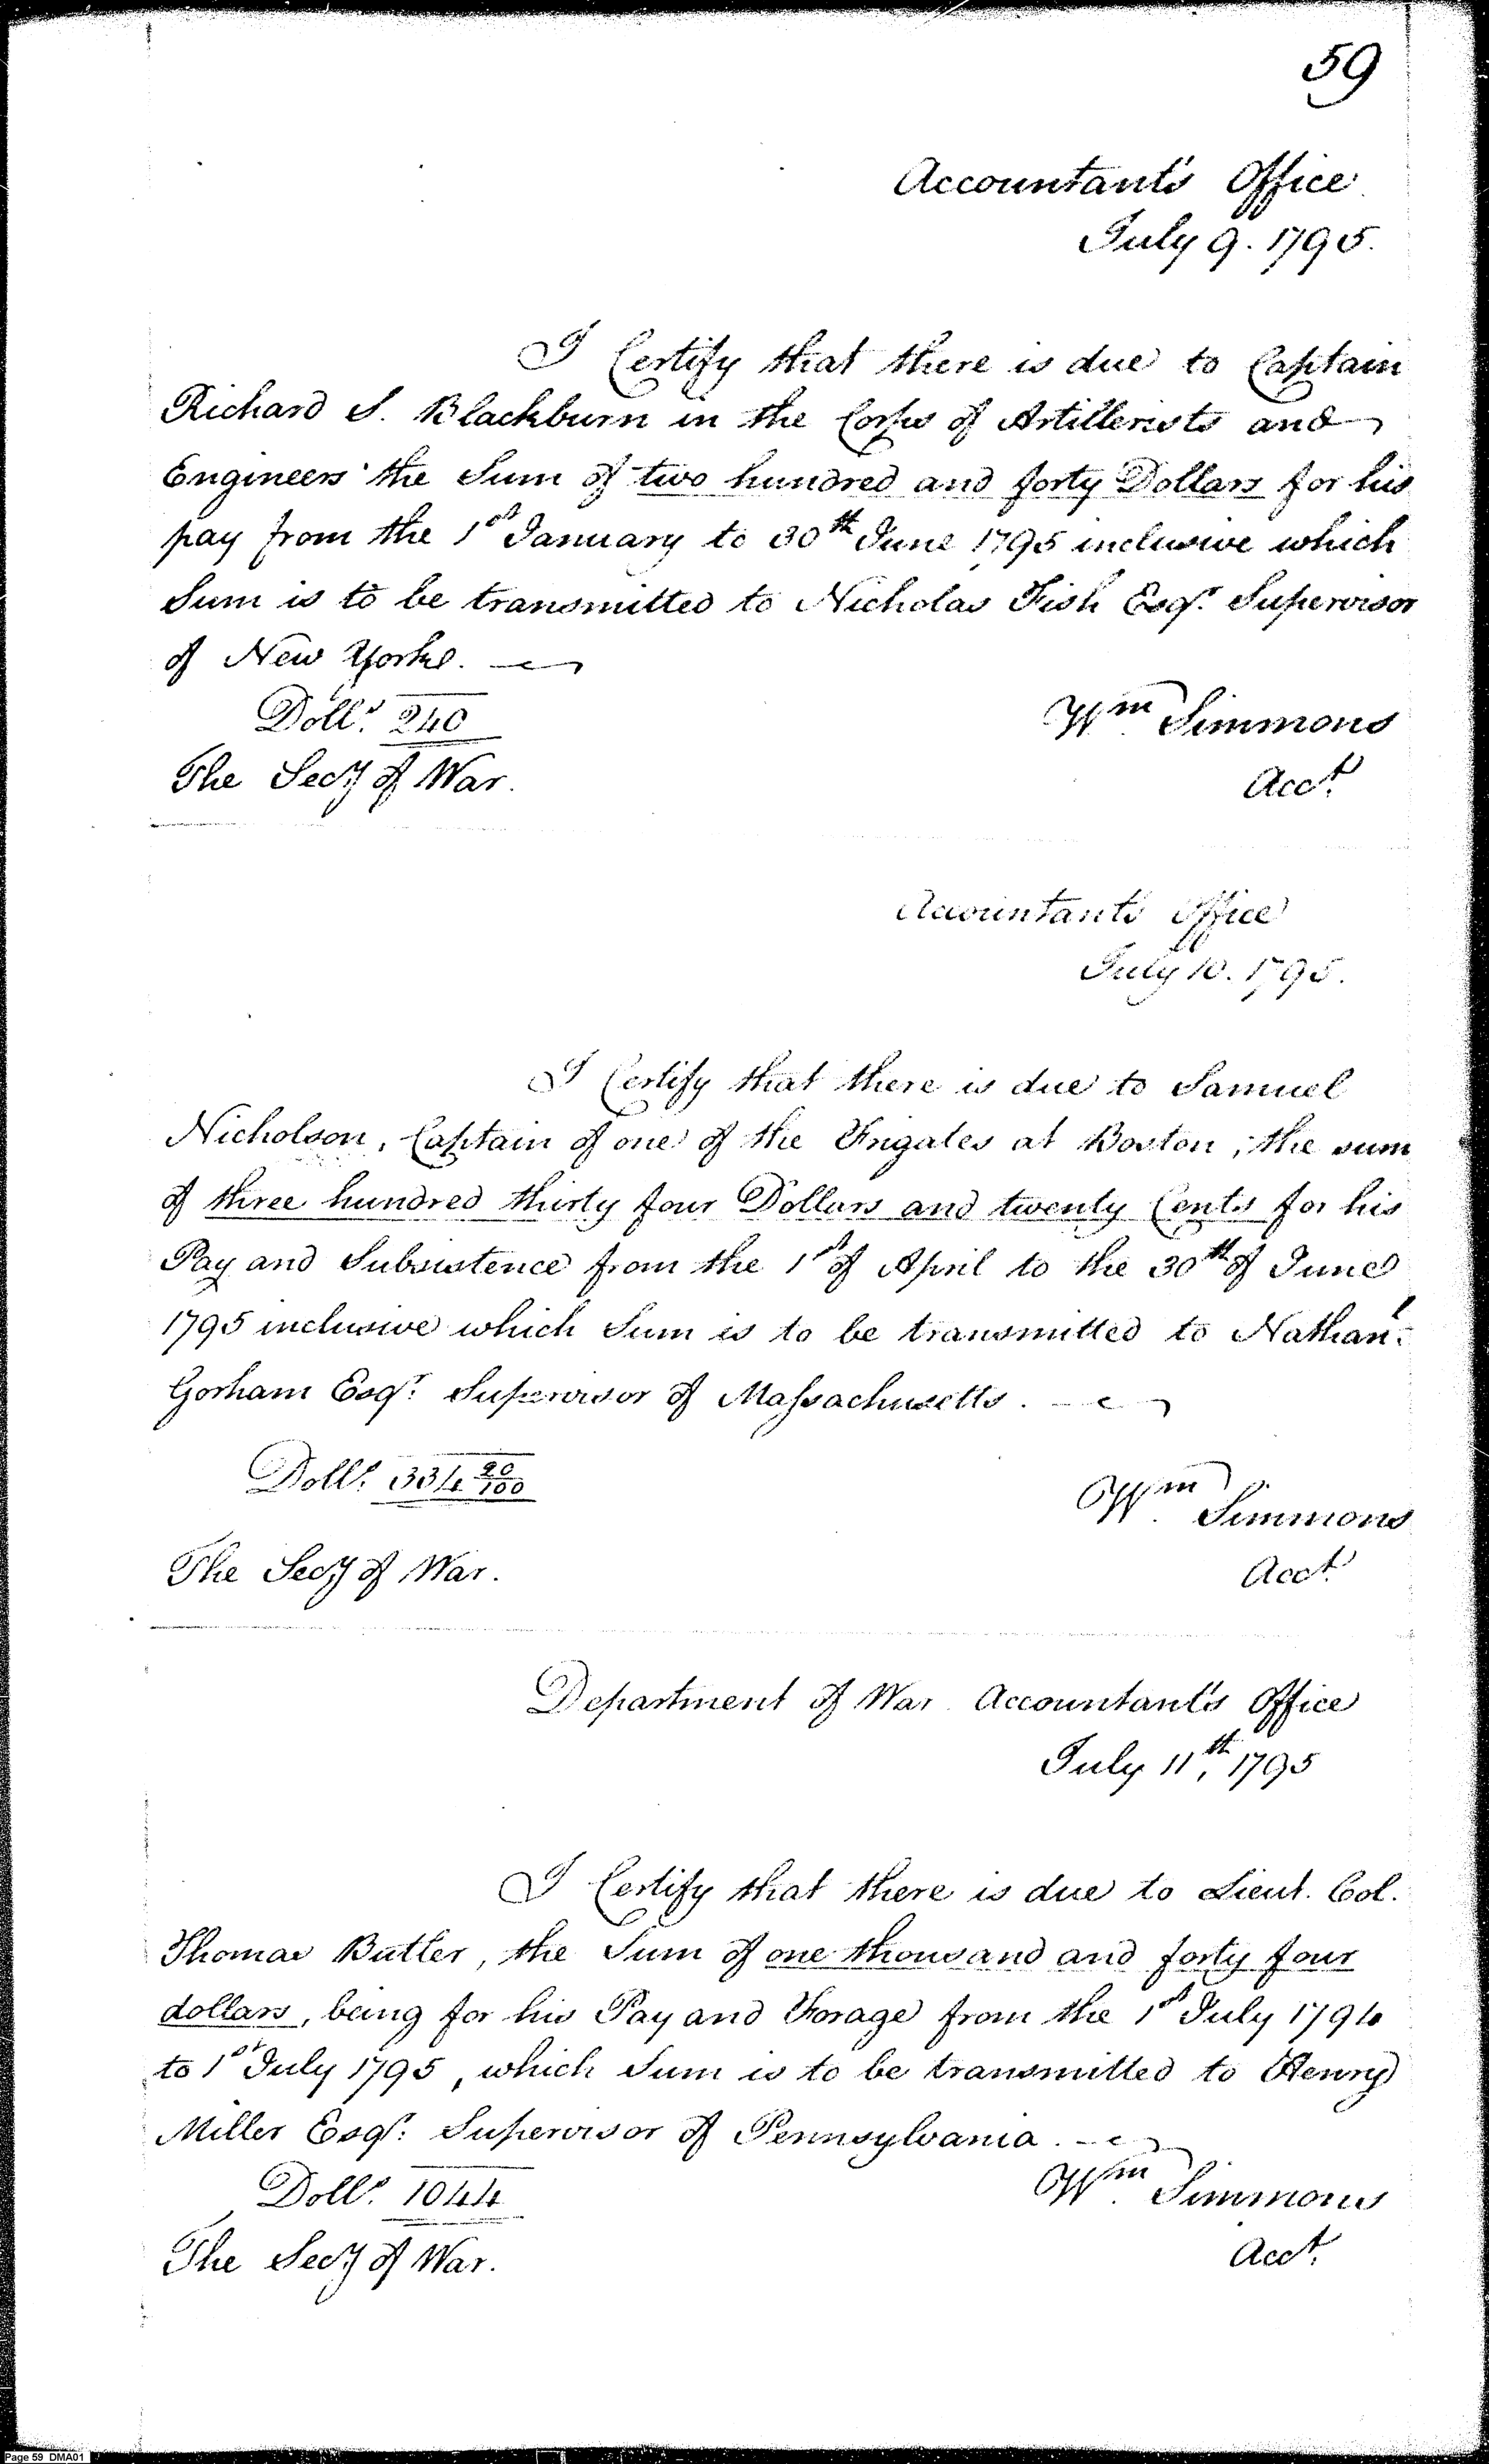 59
Accountant's Office
July 9. 1795.
I Certify that there is due to Captain
Richard S. Blackburn in the Corps of Artillerists and
Engineers the Sum of two hundred and forty Dollars for his
pay from the 1st January to 30th June 1795 inclusive which
Sum is to be transmitted to Nicholas Fish Esqr. Supervisor
of New Yorke.
Dolls. 240
Wm. Simmons
The Secy of War.
Acct.
Accountant's Office
July 10. 1795.
I Certify that there is due to Samuel
Nicholson, Captain of one of the Frigates at Boston, the sum
of three hundred thirty four Dollars and twenty Cents for his
Pay and Subsistence from the 1st of April to the 30th of June
1795 inclusive which Sum is to be transmitted to Nathanl.
Gorham Esqr. Supervisor of Massachusetts.
Dolls. 334 20/100
Wm. Simmons
The Secy of War.
Acct.
Department of War Accountant's Office
July 11th, 1795
I Certify that there is due to Lieut. Col.
Thomas Butler, the Sum of one thousand and forty four
dollars, being for his Pay and Forage from the 1st July 1794
to 1st July 1795, which Sum is to be transmitted to Henry
Miller Esqr. Supervisor of Pennsylvania.
Dolls. 1044
Wm. Simmons
The Secy of War.
Acct.
Page 59 DMA01